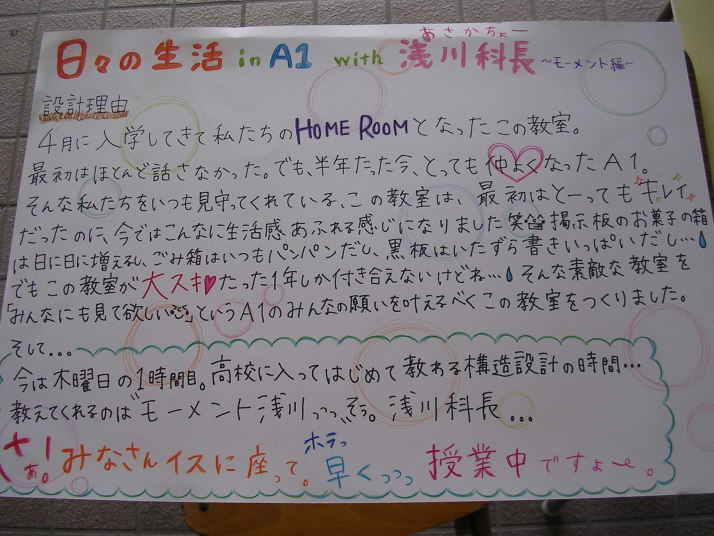 あさかちょー
日々の生活 in A1 with 浅川科長 ~モーメント編~
設計理由
4月に入学してきて私たちのHOME ROOMとなったこの教室。
最初はほとんど話さなかった。でも、半年たった今、とっても仲よくなったA1。
そんな私たちをいつも見守ってくれている、この教室は、最初はとーってもキレイ
だったのに、今ではこんなに生活感あふれる感じになりました笑 掲示板のお菓子の箱
は日に日に増えるし、ごみ箱はいつもパンパンだし、黒板はいたずら書きいっぱいだし…
でもこの教室が大スキ♥たった1年しか付き合えないけどね… そんな素敵な教室を
「みんなにも見て欲しい」というA1のみんなの願いを叶えるべくこの教室をつくりました。
そして...
今は木曜日の1時間目。高校に入ってはじめて教わる構造設計の時間…
教えてくれるのは"モーメント浅川っっ"そう。浅川科長...
ホラっ
さぁ!。みなさんイスに座って。早くっっっ 授業中ですよ~。